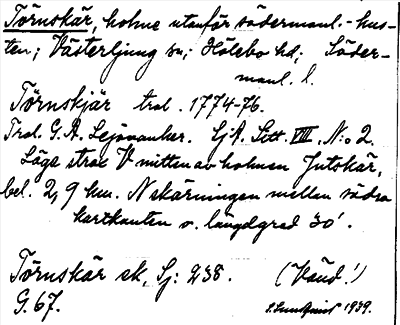 Törnskär, holme utanför södermanl.-kus-
ten; Västerljung sn; Hölebo hd; Söder-
manl. l.
Törnskjär trol. 1774-76.
Trol. G. A. Lejonanker. SjA. Litt. VIII. N:o 2.
Läge strax V mitten av holmen Jutskär,
bel. 2,9 km. N skärningen mellan södra
kartkanten o. längdgrad 30'.
Törnskär sk, Sj: 238. (Vänd!)
G. 67. S. Lundqvist 1939.